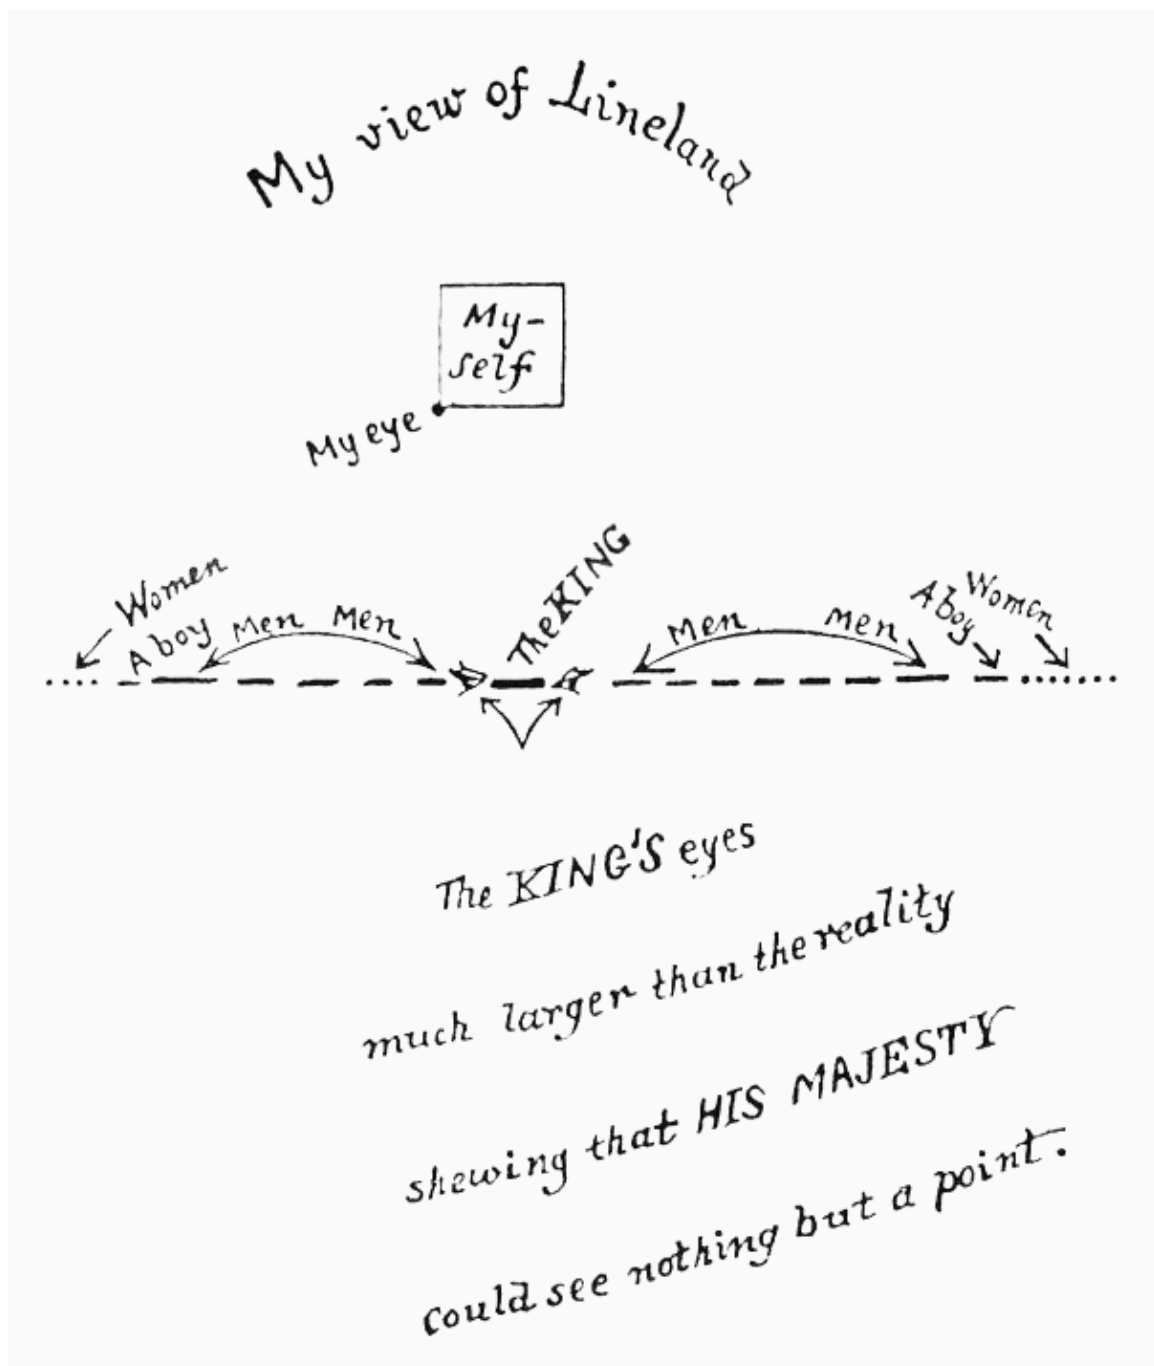 My view of Lineland
My-
self
My eye
Women
A boy
Men Men
The KING
Men men
A boy
Women
The KING'S eyes
much larger than the reality
shewing that HIS MAJESTY
could see nothing but a point.